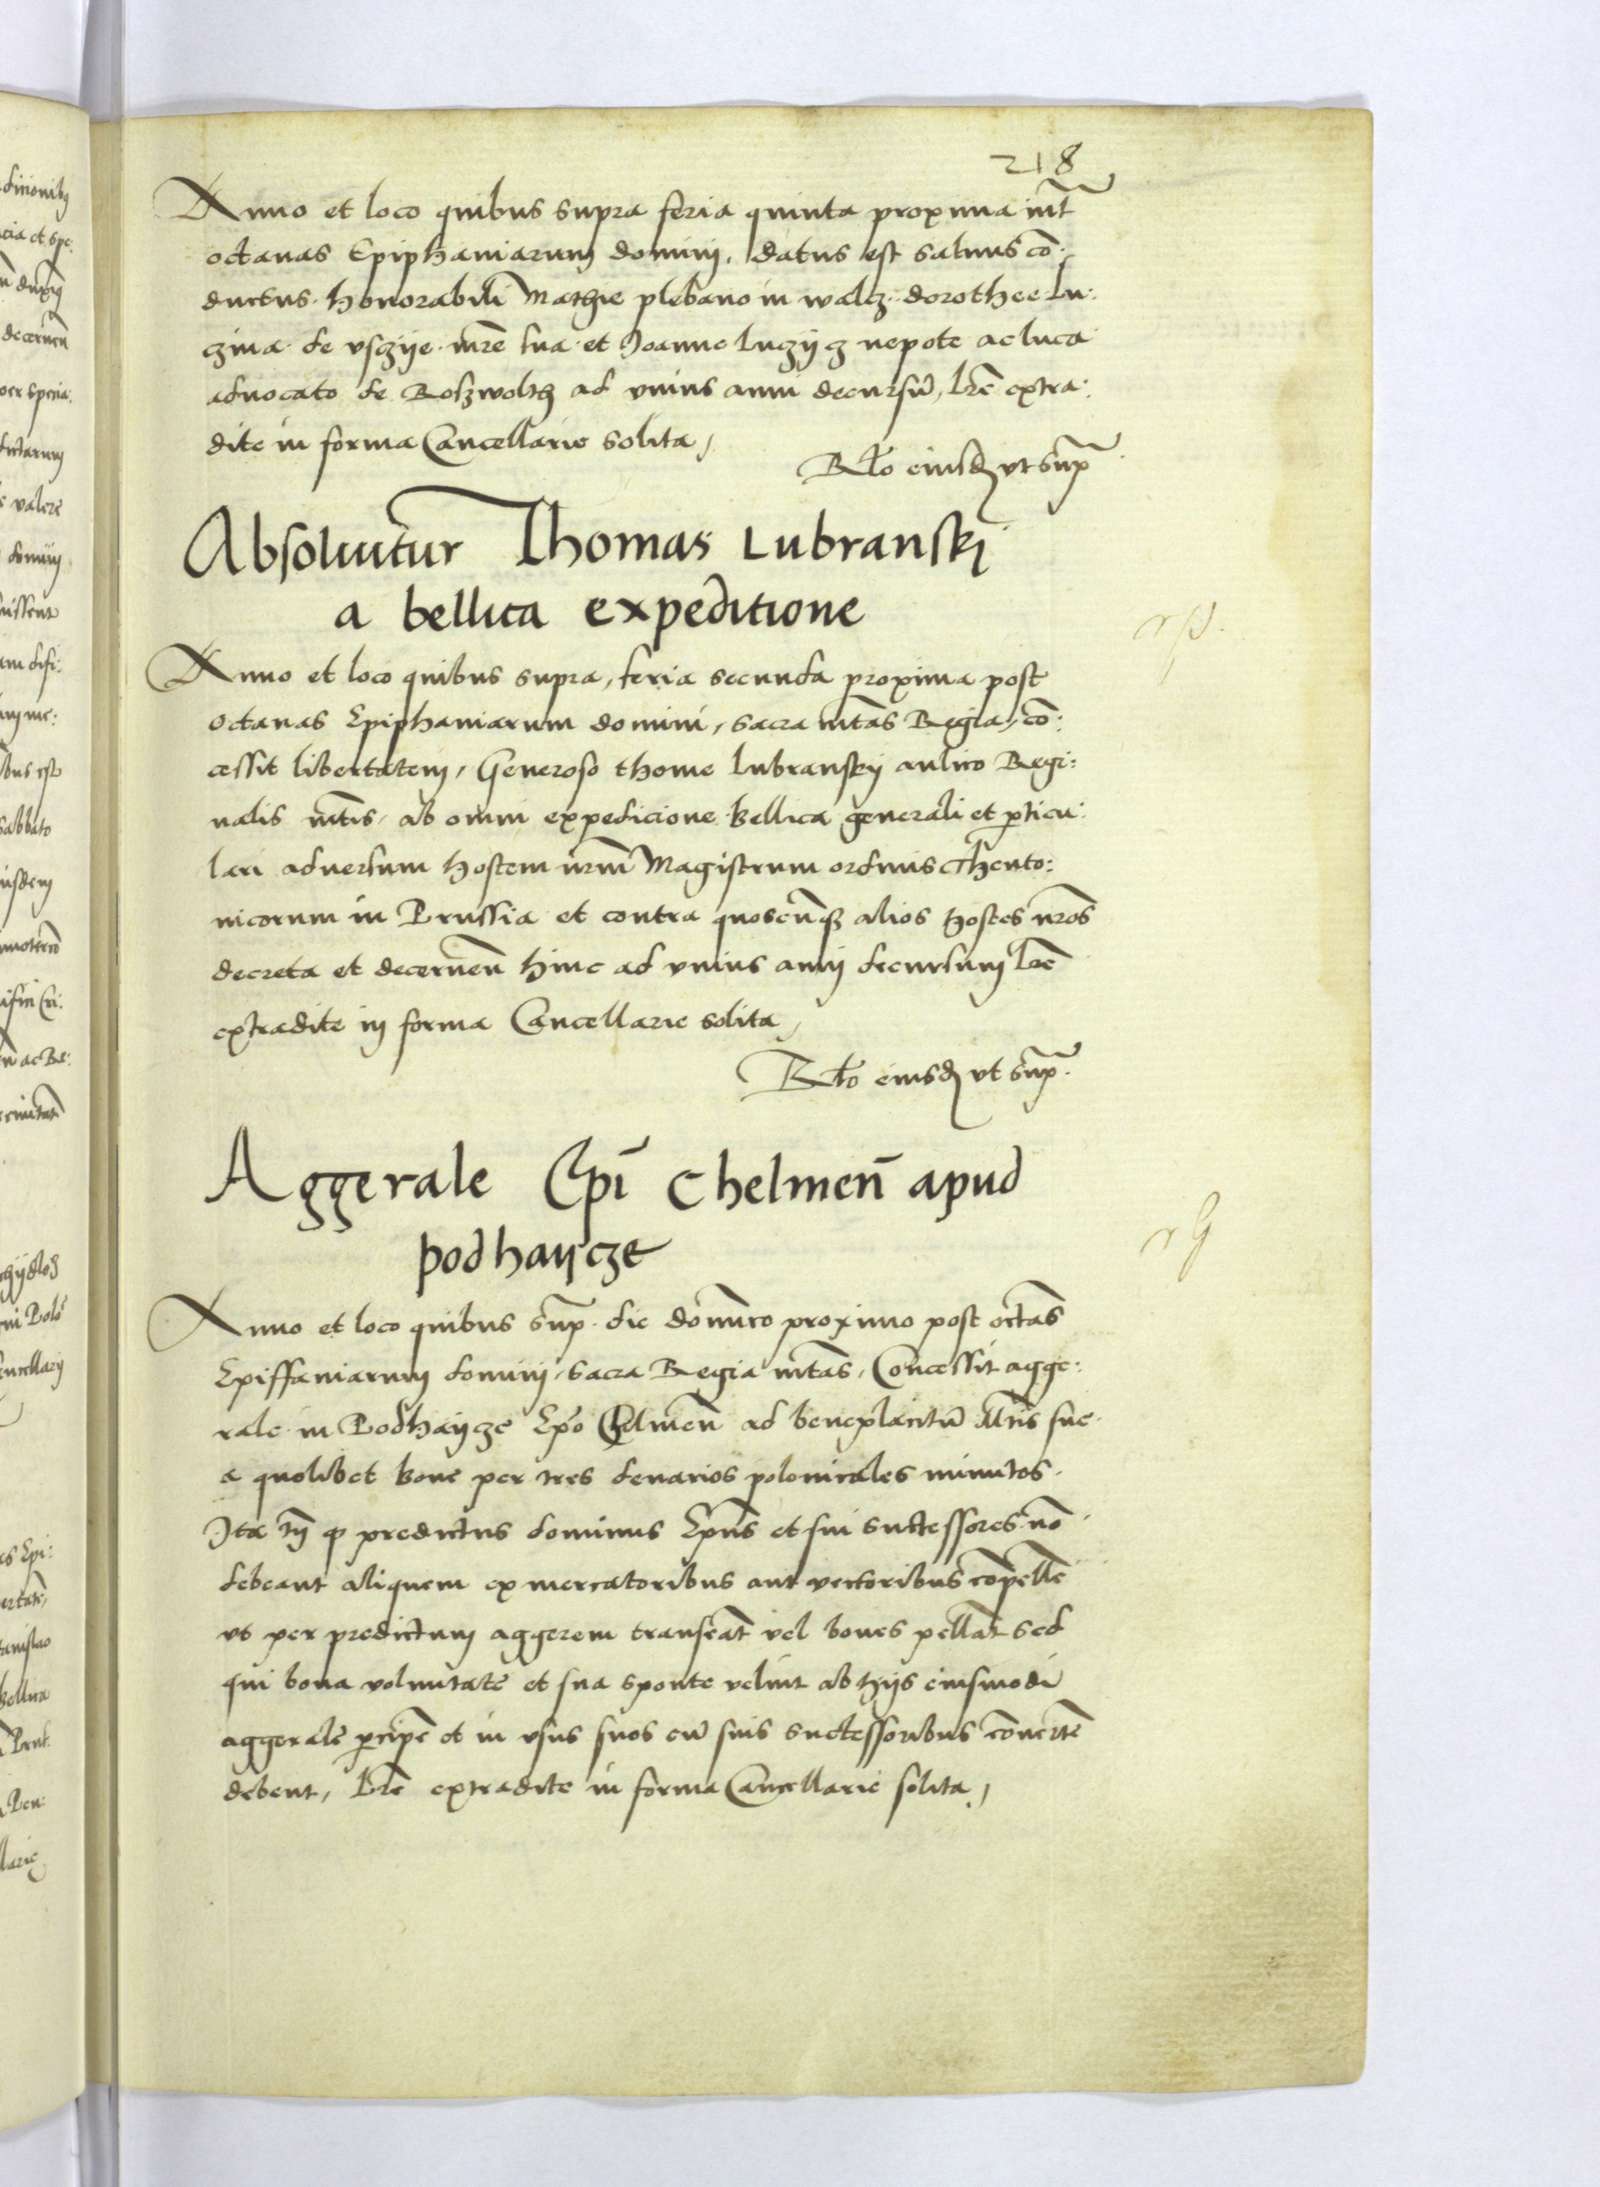 218
Anno et loco quibus supra feria quinta proxima int̃
octauas Epiphaniarum domini, datus est saluus cō:
ductus. honorabili Mathie plebano in walcz. dorothee Lu:
czina de vsczÿe. mr̃e sua. et Joanne LuczÿcZ nepote ac luca
aduocato de Roszwolth ad vnius anni decursũ, lr̃e extra:
dite in forma Cancellarie solita,
Rl̃o eiusdẽ vt sup̃
Absoluitur Thomas Lubranskj
a bellica expeditione
Anno et loco quibus supra, feria secunda proxima post
octauas Epiphaniarum domini, sacra mt̃as Regia, cō:
cessit libertatem, Generoso thome lubranskÿ aulico Regi:
nalis mt̃is, ab omni expedicione bellica generali et ꝑticu:
lari aduersum hostem nr̃m Magistrum ordinis Theuto:
nicorum in Prussia et contra quoscũqꝫ alios hostes nr̃os
decreta et decerneñ hinc ad vnius anni decursum lr̃e
extradite in forma Cancellarie solita,
Rl̃o eiusdẽ vt sup̃.
Aggerale Ep̃i Chelmeñ apud
podhaÿcze
Anno et loco quibus sup̃. die dominico proximo post octãs
Epiffaniarum domini, sacra Regia mt̃as, Concessit agge:
rale in Podhaÿcze Ep̃o Chelmeñ ad beneplacitũ Mt̃is sue
a quolibet boue per tres denarios polonicales minutos.
Ita tñ ꝙ predictus dominus Ep̃us et sui successores nõ
debeant aliquem ex mercatoribus aut vectoribus cõpelle̅
vt per predictum aggerem transeãt vel boues pellãt sed
qui bona voluntate et sua sponte velint ab hÿs eiusmodi
aggerale ꝑcipẽ et in vsus suos cũ suis successoribus cõuerte̅
debent, lr̃e extradite in forma Cancellarie solita,